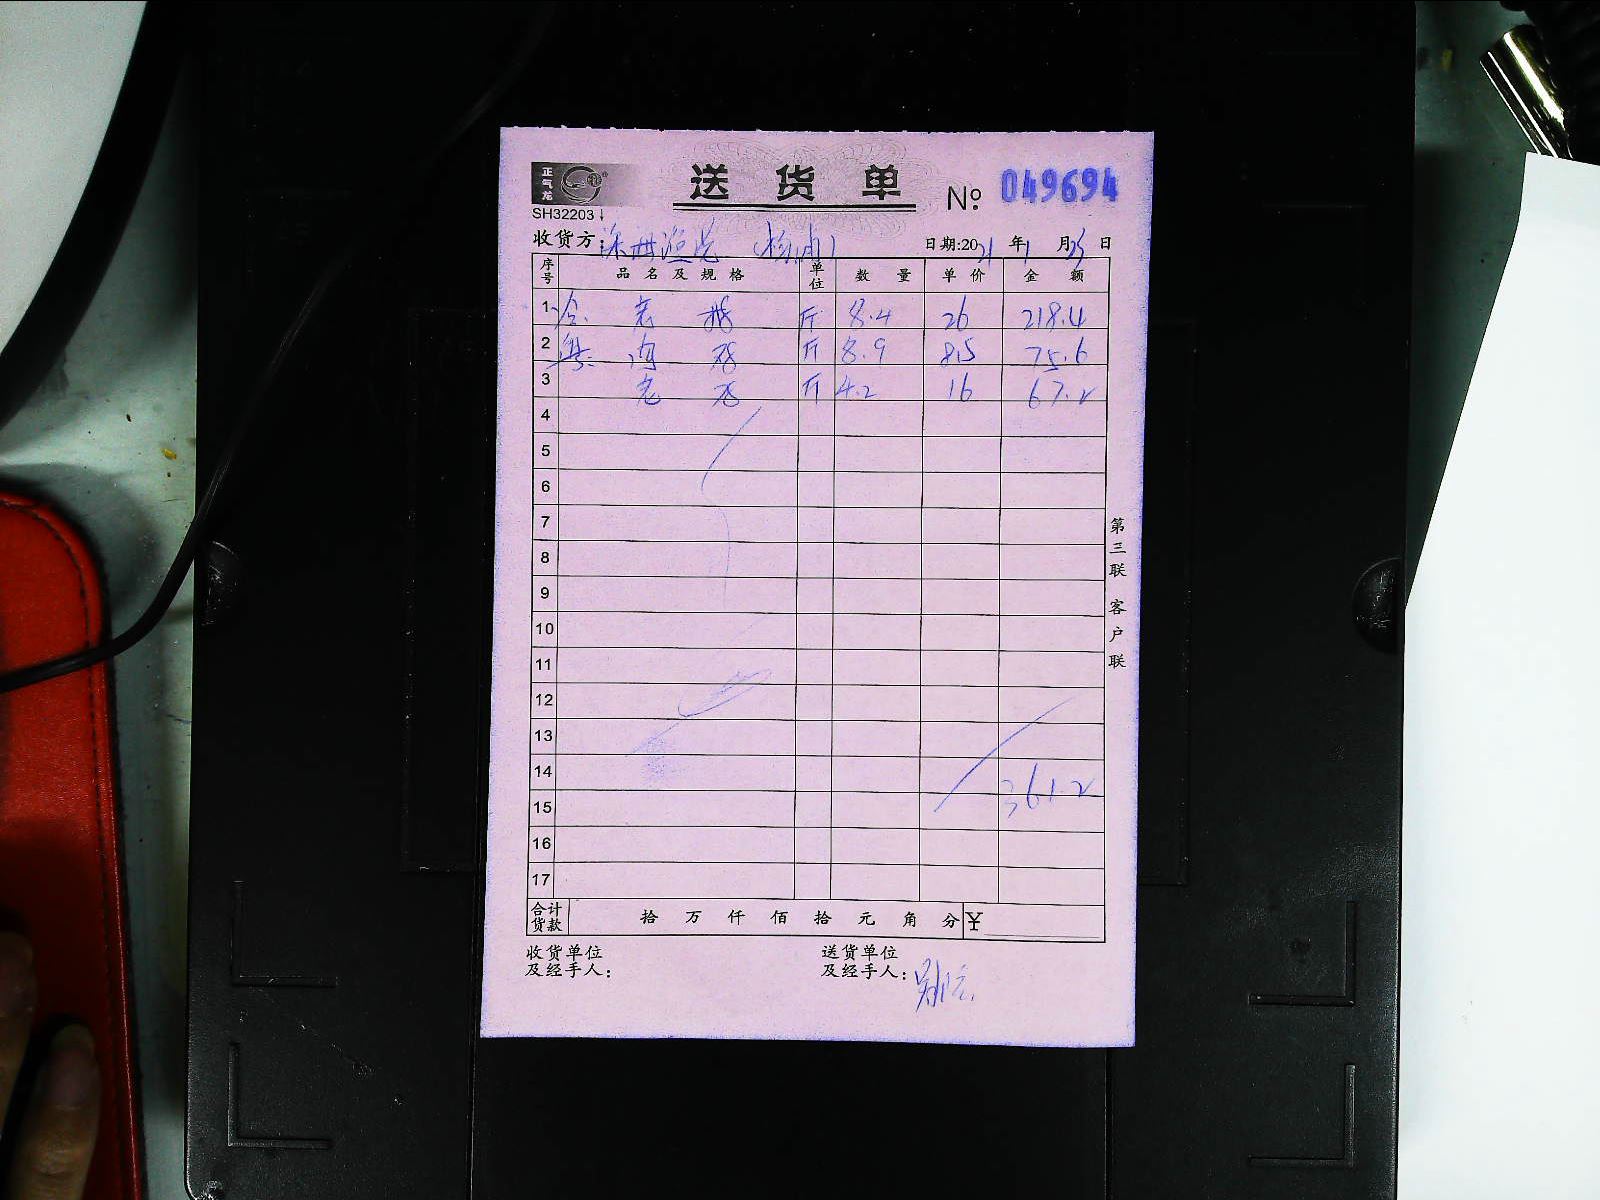 正气龙
送货单 № 049694
SH32203↓
收货方: 日期:2021年1月25日
序号 品名及规格 单位 数量 单价 金额
1 老鹅 斤 8.4 26 218.4
2 肉鸡 斤 8.9 8.5 75.6
3 老鸡 斤 4.2 16 67.2
4
5
6
7
8
9
10
11
12
13
14 361.2
15
16
17
合计货款 拾 万 仟 佰 拾 元 角 分 ¥
收货单位 送货单位
及经手人: 及经手人:
第三联 客户联